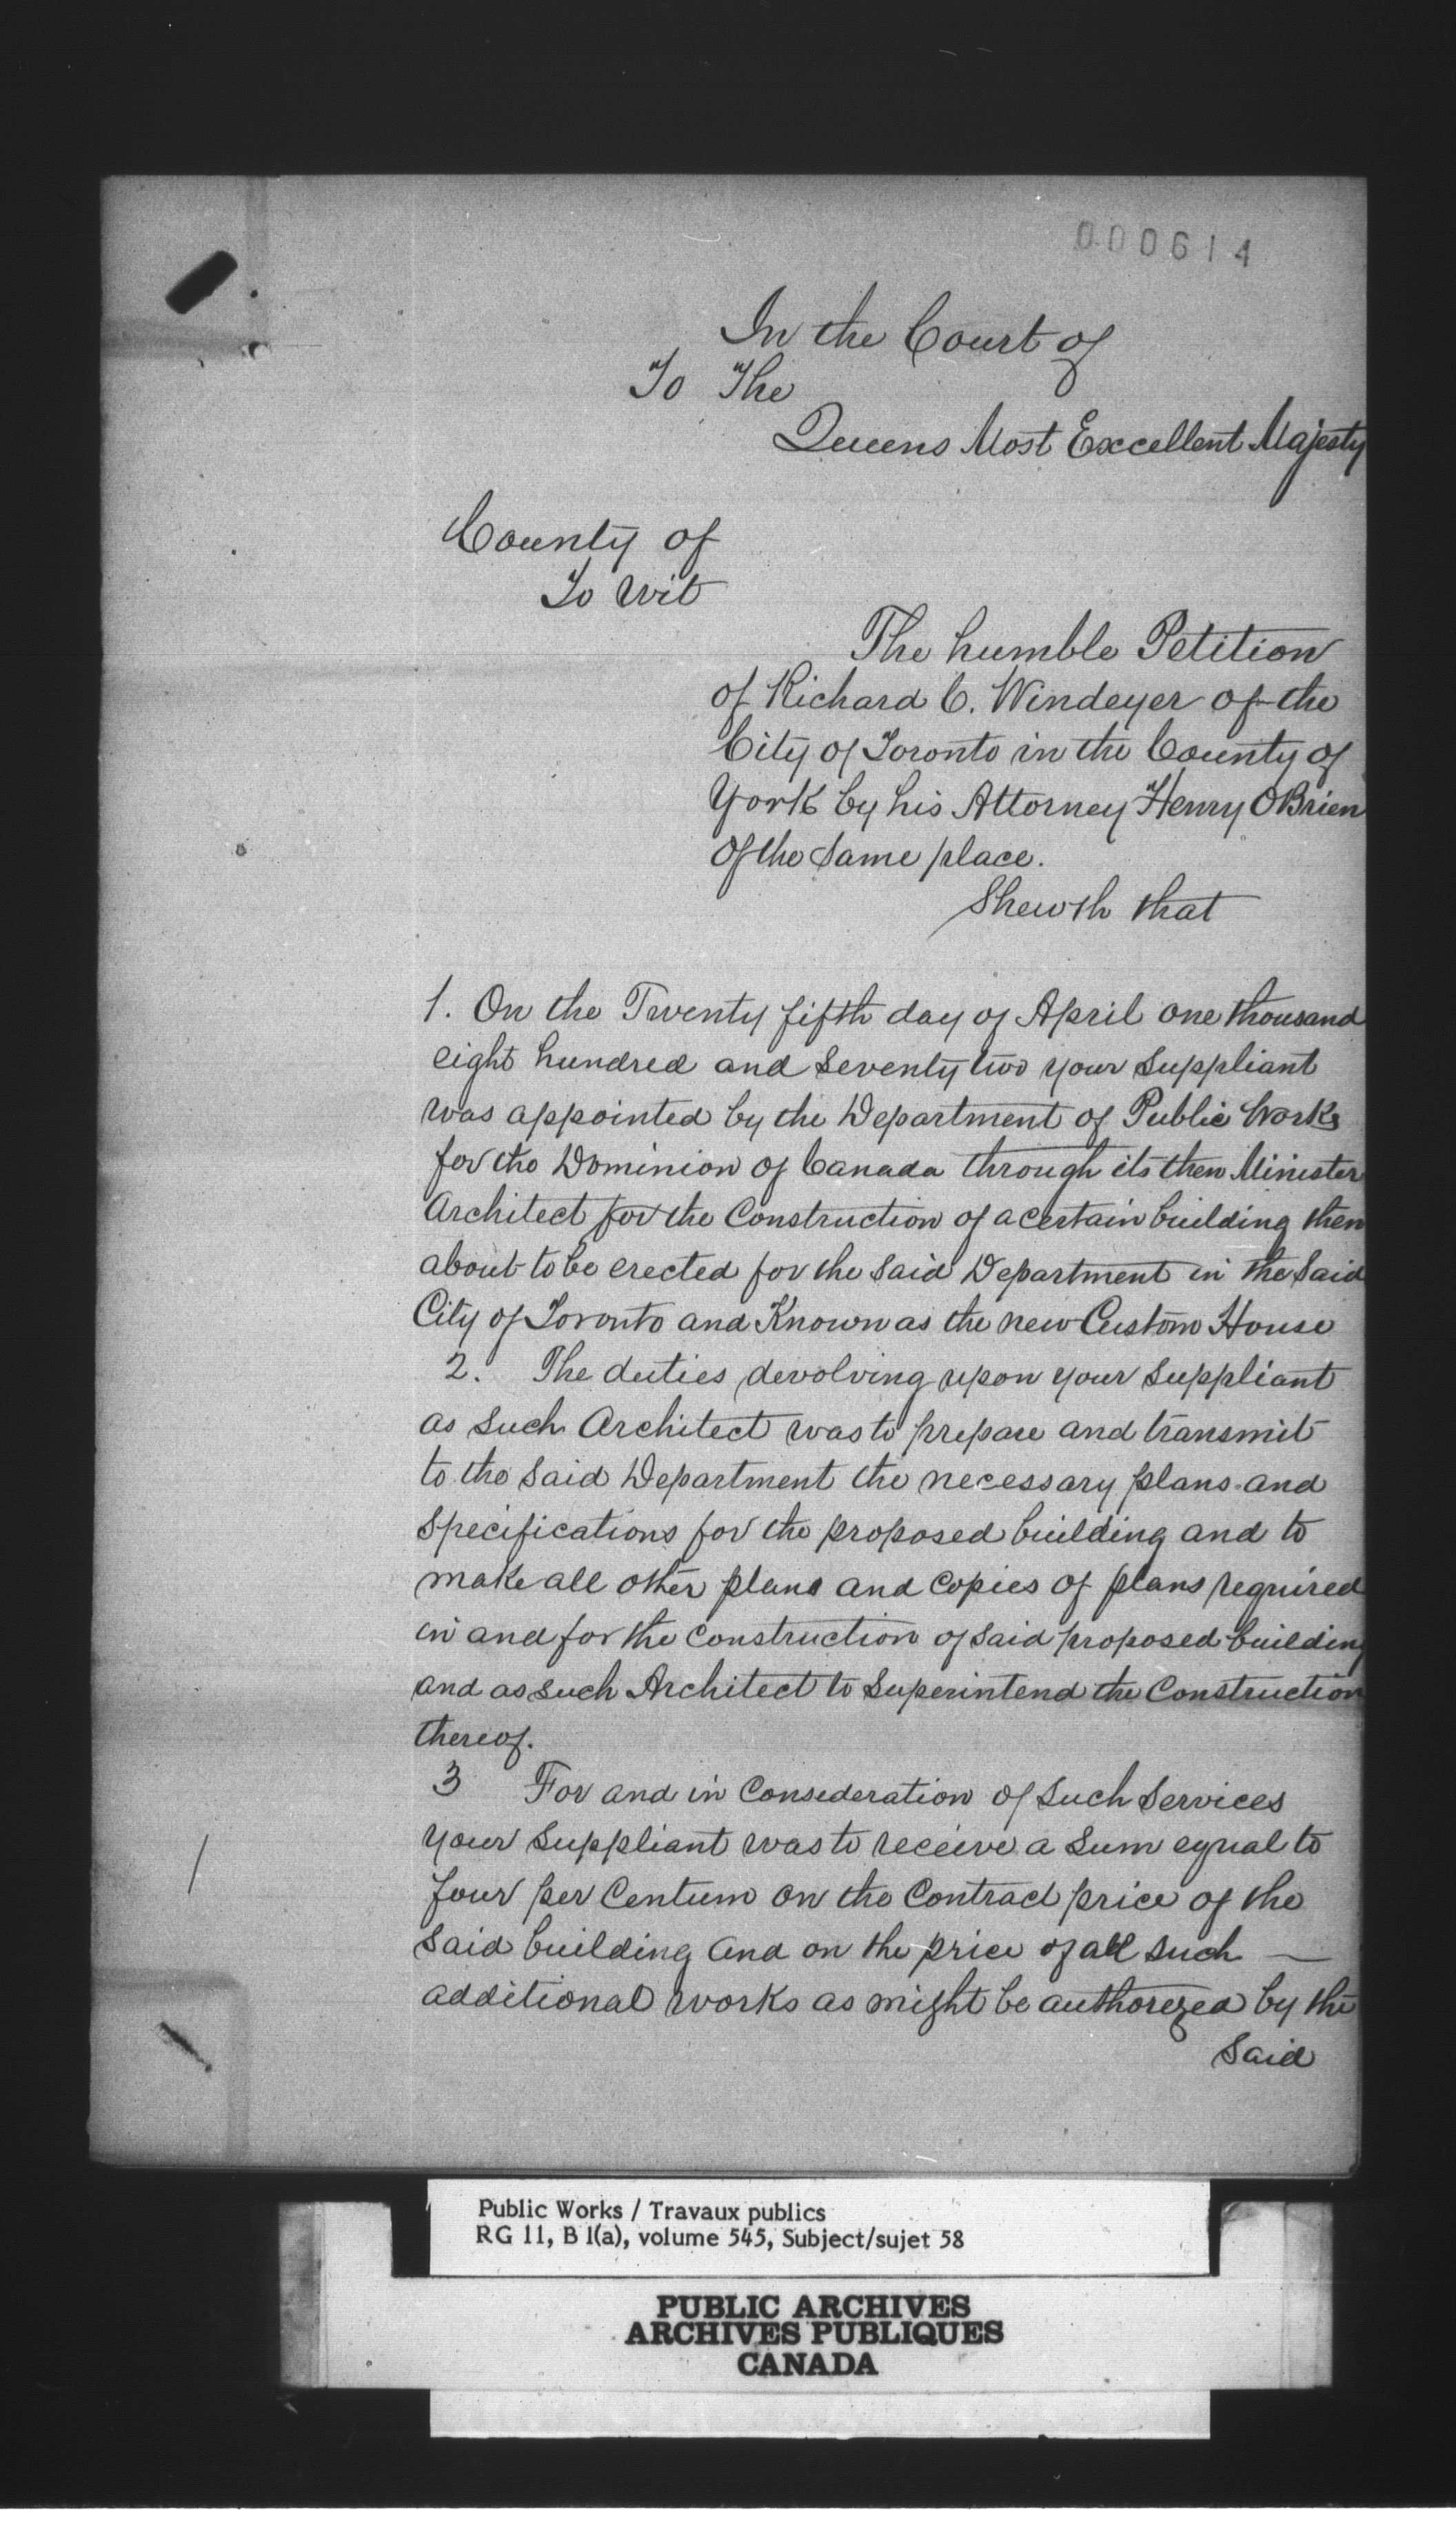 000614
In the Court of
To The
Queens Most Excellent Majesty
County of
To Wit
The humble Petition
of Richard C. Windeyer of the
City of Toronto in the County of
York by his Attorney Henry OBrien
of the same place.
Shewth that
1. On the Twenty fifth day of April one thousand
eight hundred and Seventy two your Suppliant
was appointed by the Department of Public Works
for the Dominion of Canada through its then Minister
Architect for the Construction of a certain building then
about to be erected for the said Department in the Said
City of Toronto and Known as the new Custom House
2. The duties devolving upon your Suppliant
as Such Architect was to prepare and transmit
to the Said Department the necessary plans and
Specifications for the proposed building and to
make all other plans and Copies of plans required
in and for the Construction of said proposed building
and as such Architect to Superintend the Construction
thereof.
3 For and in Consederation of Such Services
your Suppliant was to receive a Sum equal to
four per Centum on the Contract price of the
Said building and on the price of all such —
additional works as might be authorezed by the
Said
Public Works / Travaux publics
RG 11, B 1(a), volume 545, Subject/sujet 58
PUBLIC ARCHIVES
ARCHIVES PUBLIQUES
CANADA